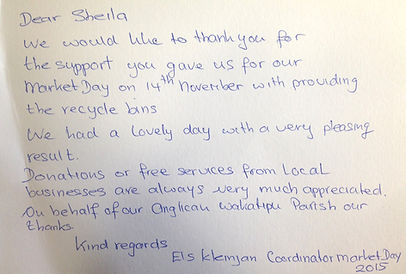 Dear Sheila
We would like to thank you for
the support you gave us for our
Market Day on 14th November with providing
the recycle bins
We had a lovely day with a very pleasing
result.
Donations or free services from local
businesses are always very much appreciated.
On behalf of our Anglican Wakatipu Parish our
thanks.
Kind regards
Els Klemjan Coordinator Market Day
2015